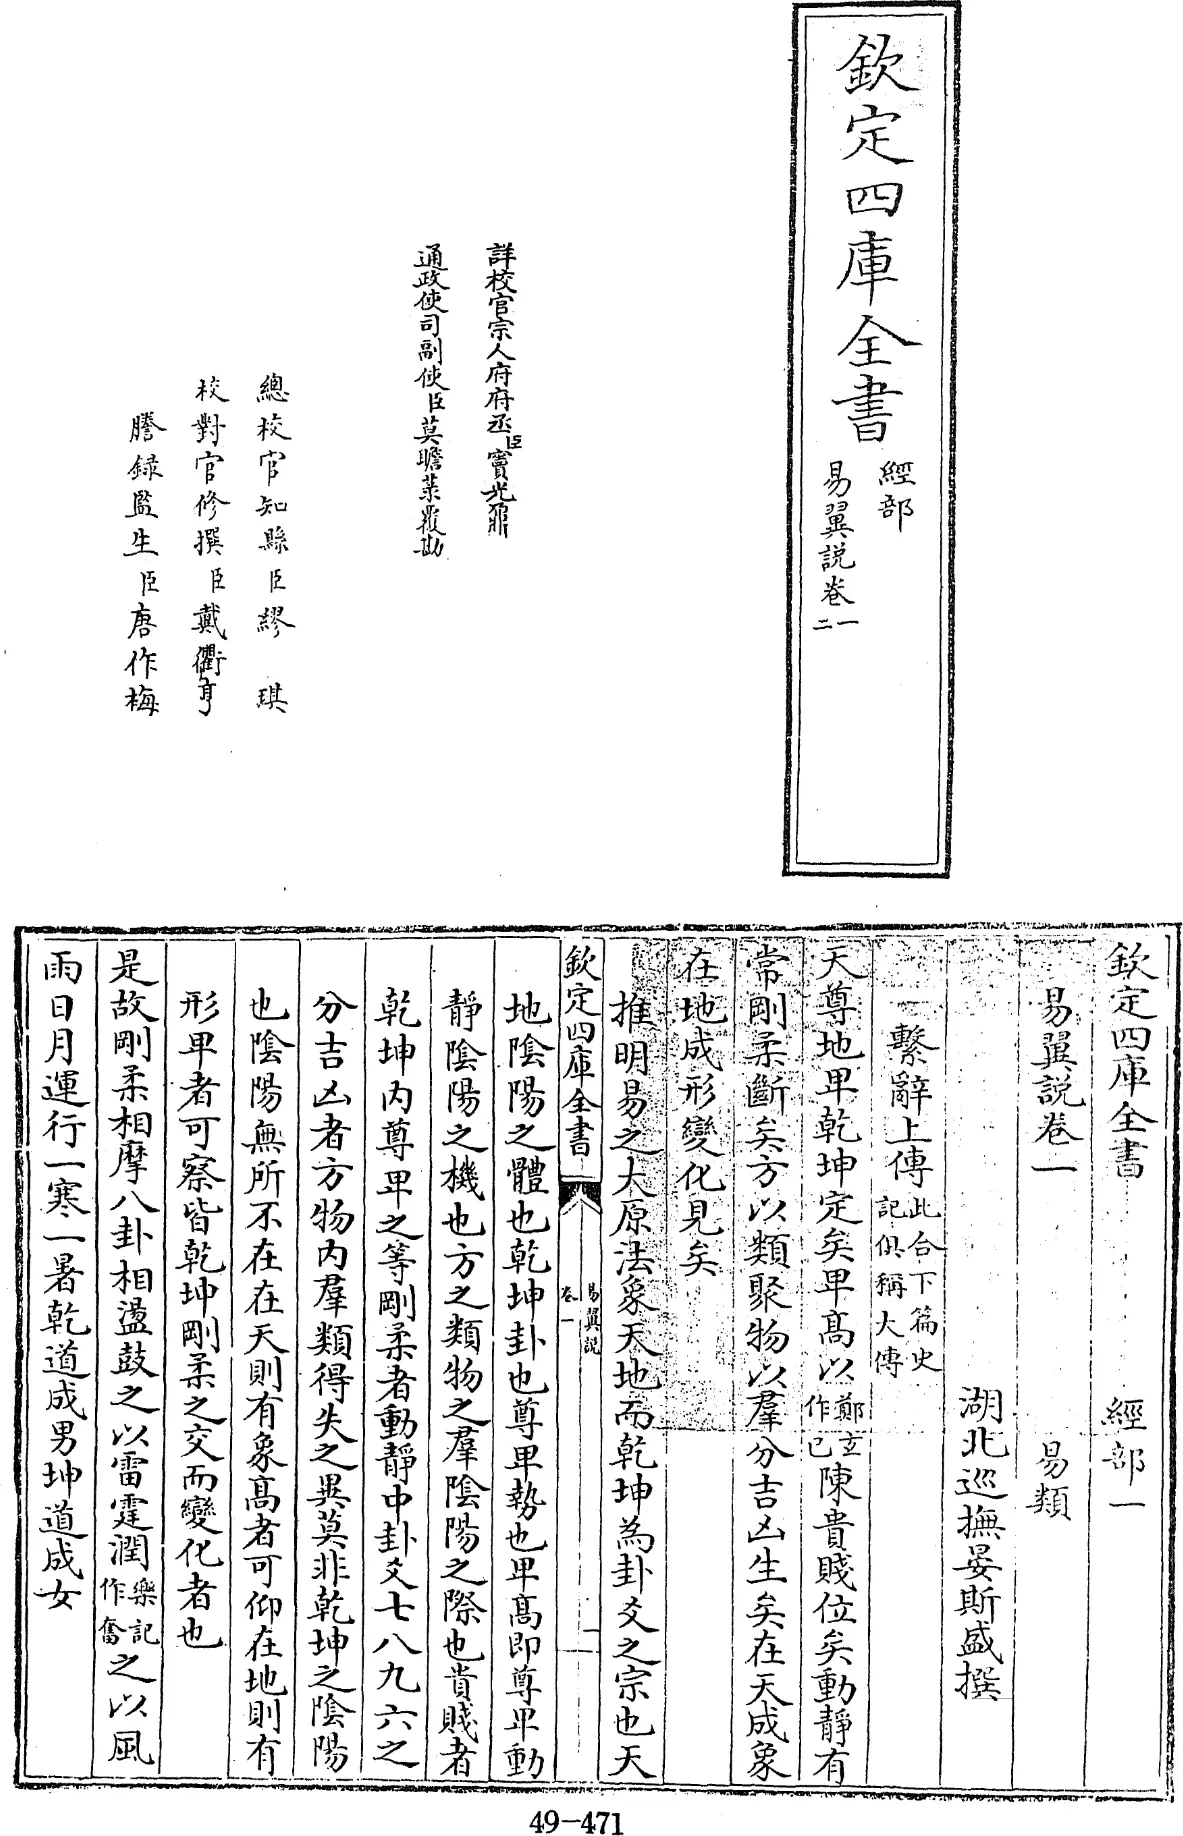 欽定四庫全書
經部
易翼說卷一
二
詳校官宗人府府丞臣竇光鼐
通政使司副使臣莫瞻菉覆勘
總校官知縣臣繆琪
校對官修撰臣戴衢亨
謄錄監生臣唐作梅
欽定四庫全書 經部一
易翼說卷一 易類
湖北巡撫晏斯盛撰
繫辭上傳此合下篇史記俱稱大傳
天尊地卑乾坤定矣卑高以鄭玄作已陳貴賤位矣動靜有
常剛柔斷矣方以類聚物以羣分吉凶生矣在天成象
在地成形變化見矣
推明易之大原法象天地而乾坤為卦爻之宗也天
欽定四庫全書 易翼說 卷一 一
地陰陽之體也乾坤卦也尊卑勢也卑高即尊卑動
靜陰陽之機也方之類物之羣陰陽之際也貴賤者
乾坤内尊卑之等剛柔者動靜中卦爻七八九六之
分吉凶者方物内羣類得失之異莫非乾坤之陰陽
也陰陽無所不在在天則有象高者可仰在地則有
形卑者可察皆乾坤剛柔之交而變化者也
是故剛柔相摩八卦相盪鼓之以雷霆潤樂記作奮之以風
雨日月運行一寒一暑乾道成男坤道成女
49-471